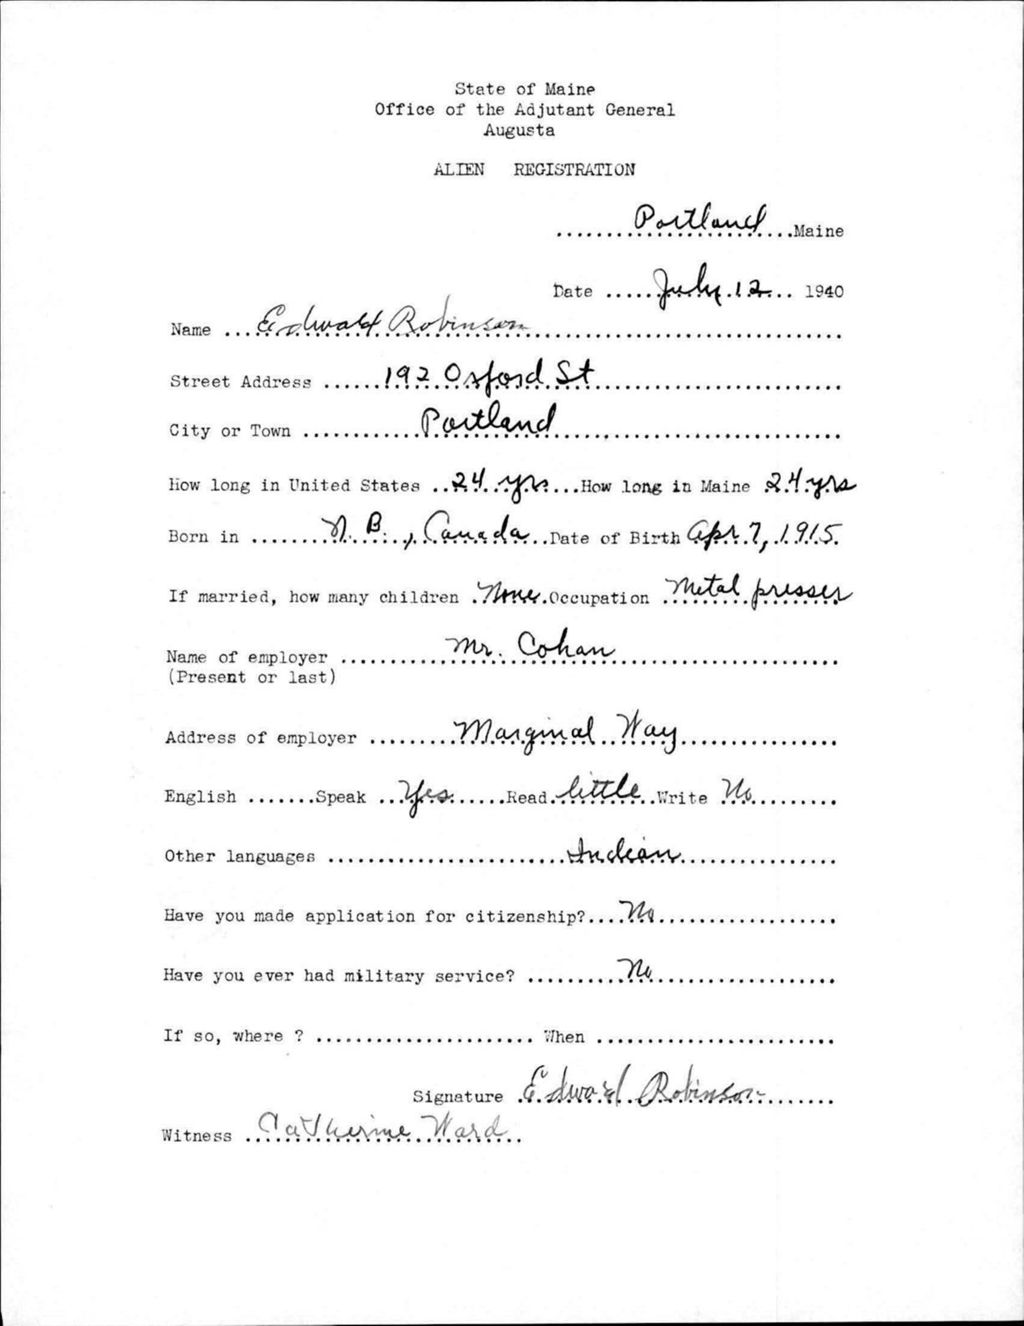 State of Maine
Office of the Adjutant General
Augusta
ALIEN REGISTRATION
.......Portland...Maine
Date .....July 12... 1940
Name ...Edward Robinson..........................
Street Address ......192 Oxford St....................
City or Town ............Portland.......................
How long in United States ..24 yrs...How long in Maine 24 yrs
Born in ........N. B., Canada..Date of Birth Apr. 7, 1915.
If married, how many children .None.Occupation .Metal presser
Name of employer ...........Mr. Cohan.....................
(Present or last)
Address of employer .........Marginal Way................
English .......Speak ..Yes......Read.little..Write No.........
Other languages ........................Indian................
Have you made application for citizenship?....No..................
Have you ever had military service? ..........No..................
If so, where ? ...................... When ........................
Signature .Edward Robinson........
Witness ..Catherine Ward..